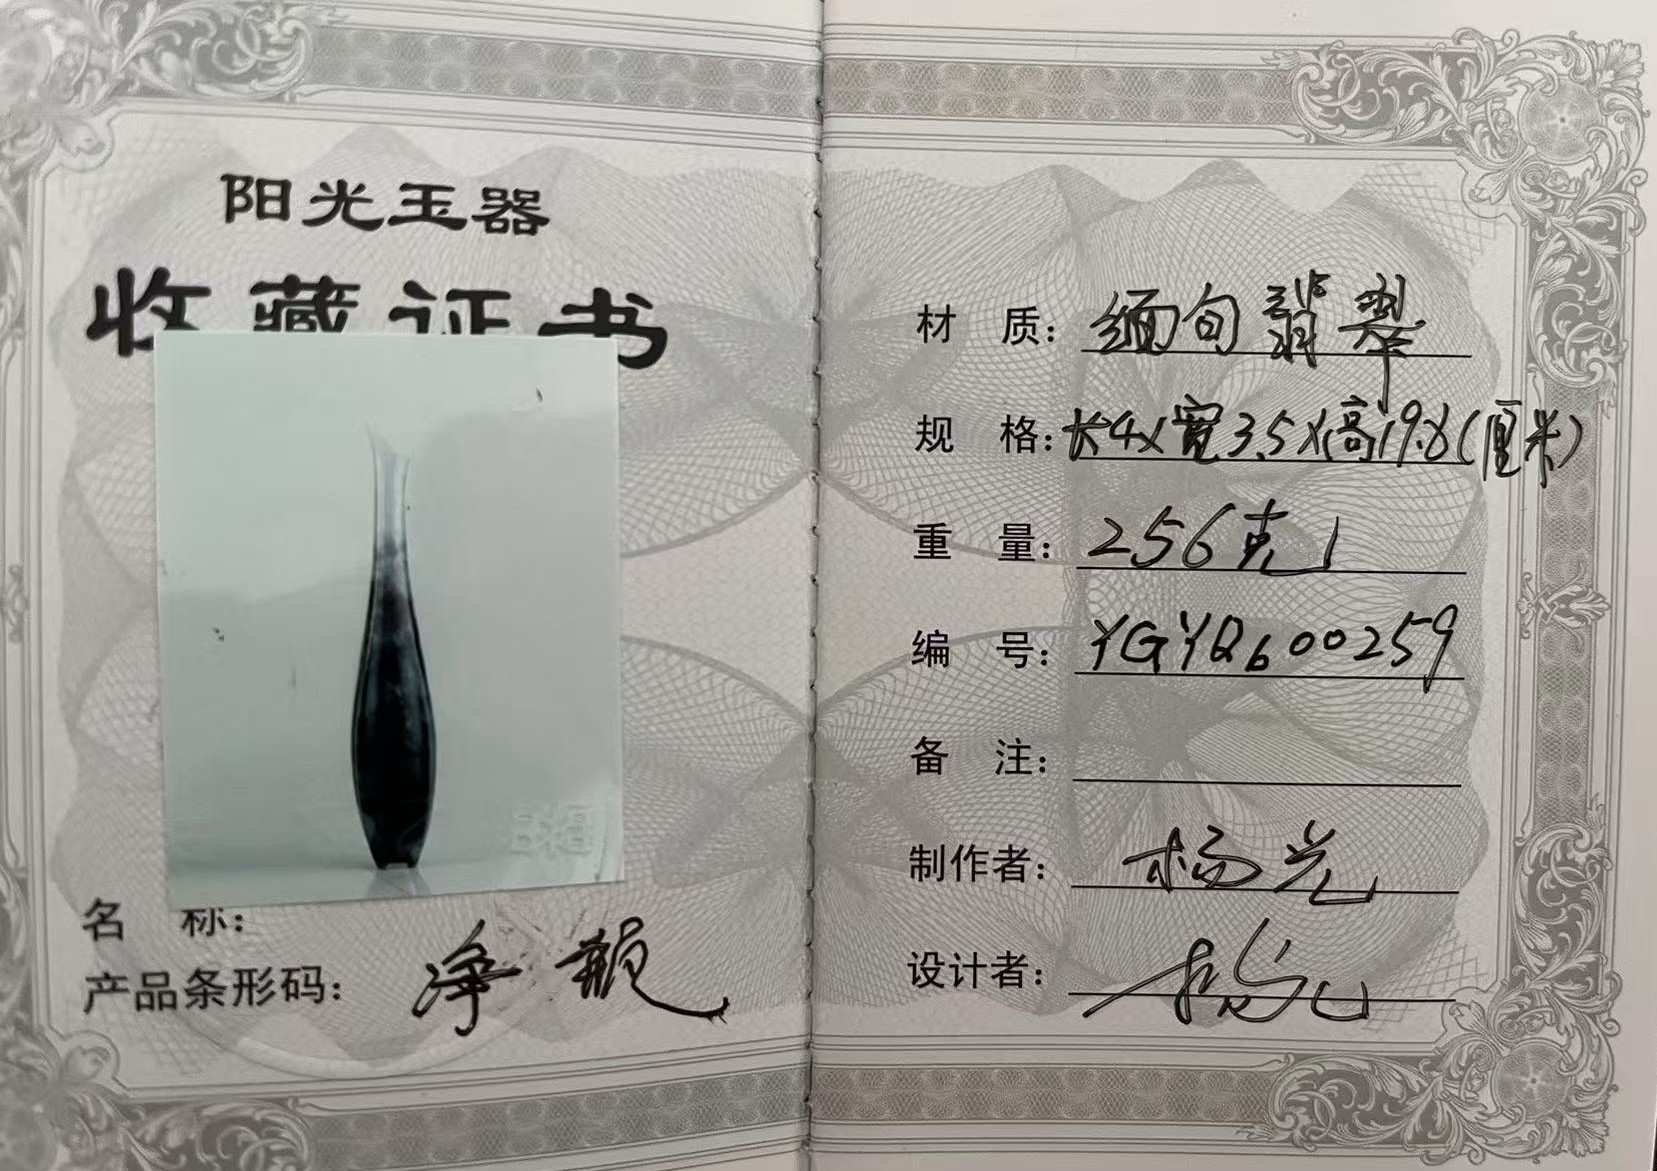 阳光玉器
收藏证书
名 称：
产品条形码： 净瓶
材 质： 缅甸翡翠
规 格： 长4X宽3.5X高19.8(厘米)
重 量： 256克
编 号： YGYQ600259
备 注：
制作者： 杨光
设计者： 杨光